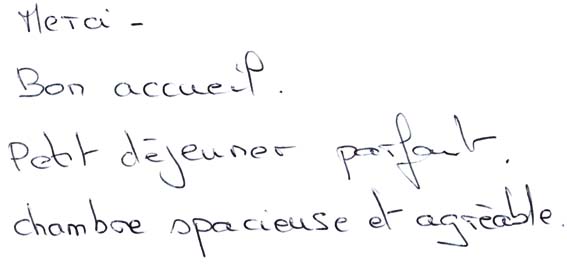 Merci -
Bon accueil.
Petit déjeuner parfait.
chambre spacieuse et agréable.